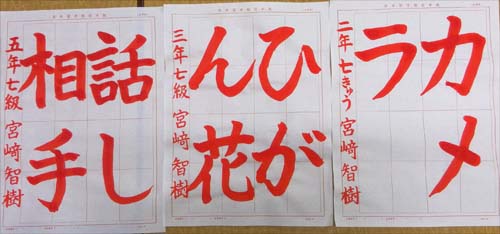 カメ
ラ
二年 七きゅう 宮﨑智樹
ひが
ん花
三年七級 宮﨑智樹
話し
相手
五年七級 宮﨑智樹